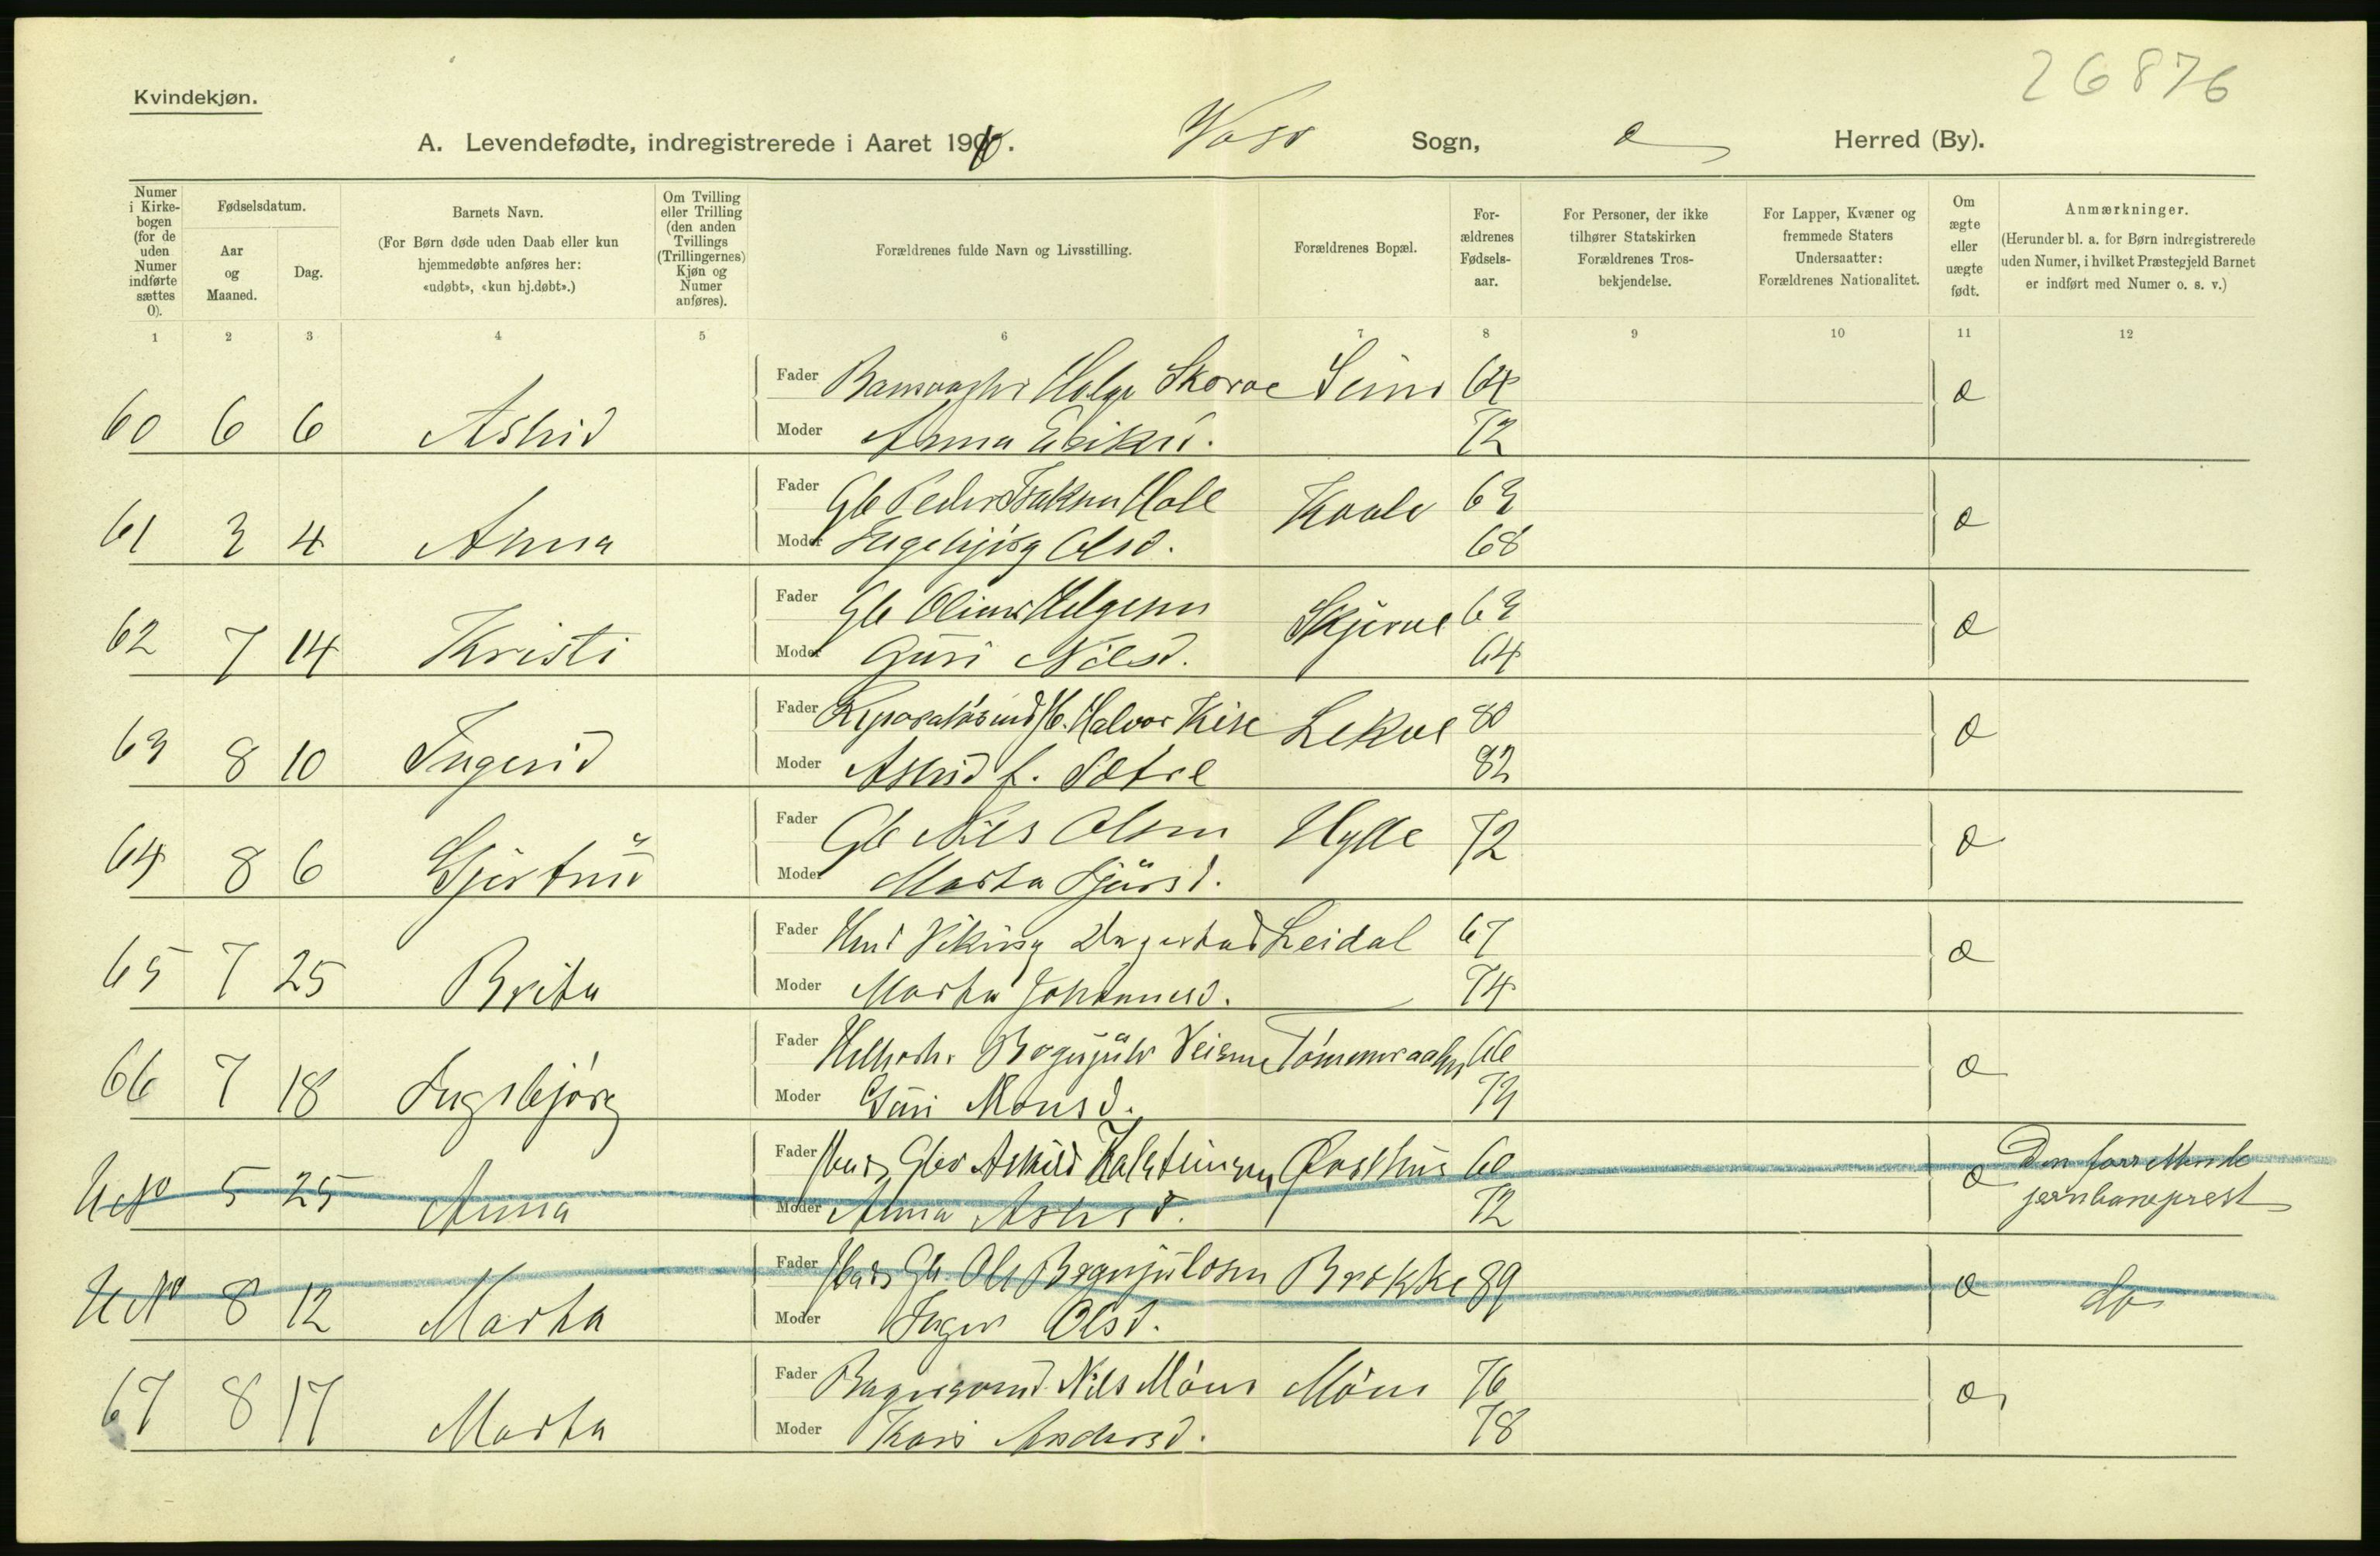 26876
Kvindekjøn.
A. Levendefødte, indregistrerede i Aaret 190 . Voss Sogn, Herred (By).
Numer i Kirke-bogen (for de uden Numer indførte sættes 0).
Fødselsdatum.
Aar og Maaned.
Dag.
Barnets Navn.
(For Børn døde uden Daab eller kun hjemmedøbte anføres her: «udøbt», «kun hj.døbt».)
Om Tvilling eller Trilling (den anden Tvillings (Trillingernes) Kjøn og Numer anføres).
Forældrenes fulde Navn og Livsstilling.
Forældrenes Bopæl.
For-ældrenes Fødsels-aar.
For Personer, der ikke tilhører Statskirken Forældrenes Tros-bekjendelse.
For Lapper, Kvæner og fremmede Staters Undersaatter: Forældrenes Nationalitet.
Om ægte eller uægte født.
Anmærkninger.
(Herunder bl. a. for Børn indregistrerede uden Numer, i hvilket Præstegjeld Barnet er indført med Numer o. s. v.)
1 2 3 4 5 6 7 8 9 10 11 12
Fader Helge Skorve Seim 64
60 6 6 Astrid æ
Moder Anna Eriksd. 72
Fader Gb Peder Isaksen Hole Kvale 63
61 3 4 Anna æ
Moder Ingebjørg Olsd. 68
Fader Gb Helgesen Skjerve 63
62 7 14 Kristi æ
Moder Guri Nilsd. 64
Fader Halvor Kise Lekve 80
63 8 10 Ingerid æ
Moder Astrid f. Sætre 82
Fader Gb Nils Olsen Hylle 72
64 8 6 Gjertrud æ
Moder Marta Sjursd.
Fader Hmd Viking Dagestad Leidal 67
65 7 25 Brita æ
Moder Marta Johannesd. 74
Fader Brynjulv 66
66 7 18 Ingebjørg æ
Moder Guri Monsd.
Fader Askild 60
U No 5 25 Anna æ
Moder Anna 72
jernbaneprest
Fader Gb. Ole Brynjulvsen Brekke 89
U No 8 12 Marta æ do
Moder Inger Olsd.
Fader Nils Møen Møen 76
67 8 17 Marta æ
Moder Kari Andersd. 78